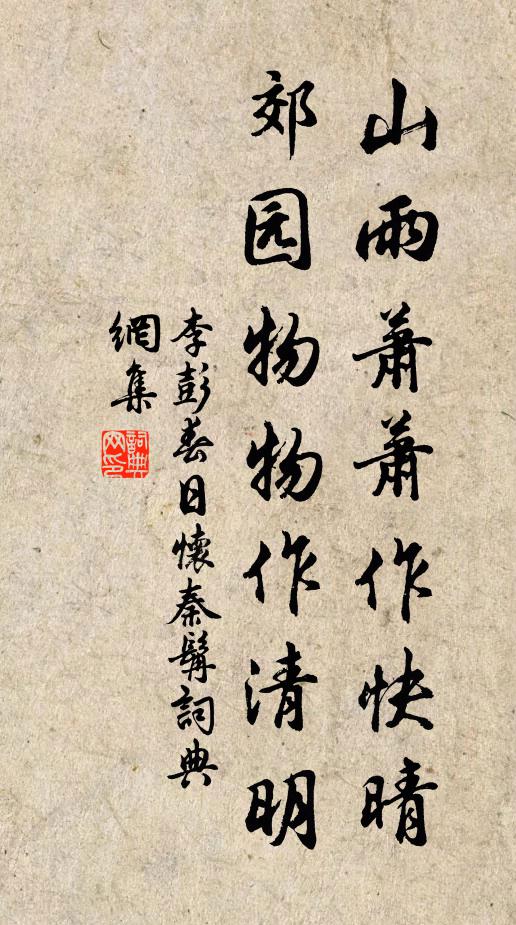 山雨萧萧作快晴
郊园物物作清明
李彭春日懷秦髯詞典
網集
詞典
网印